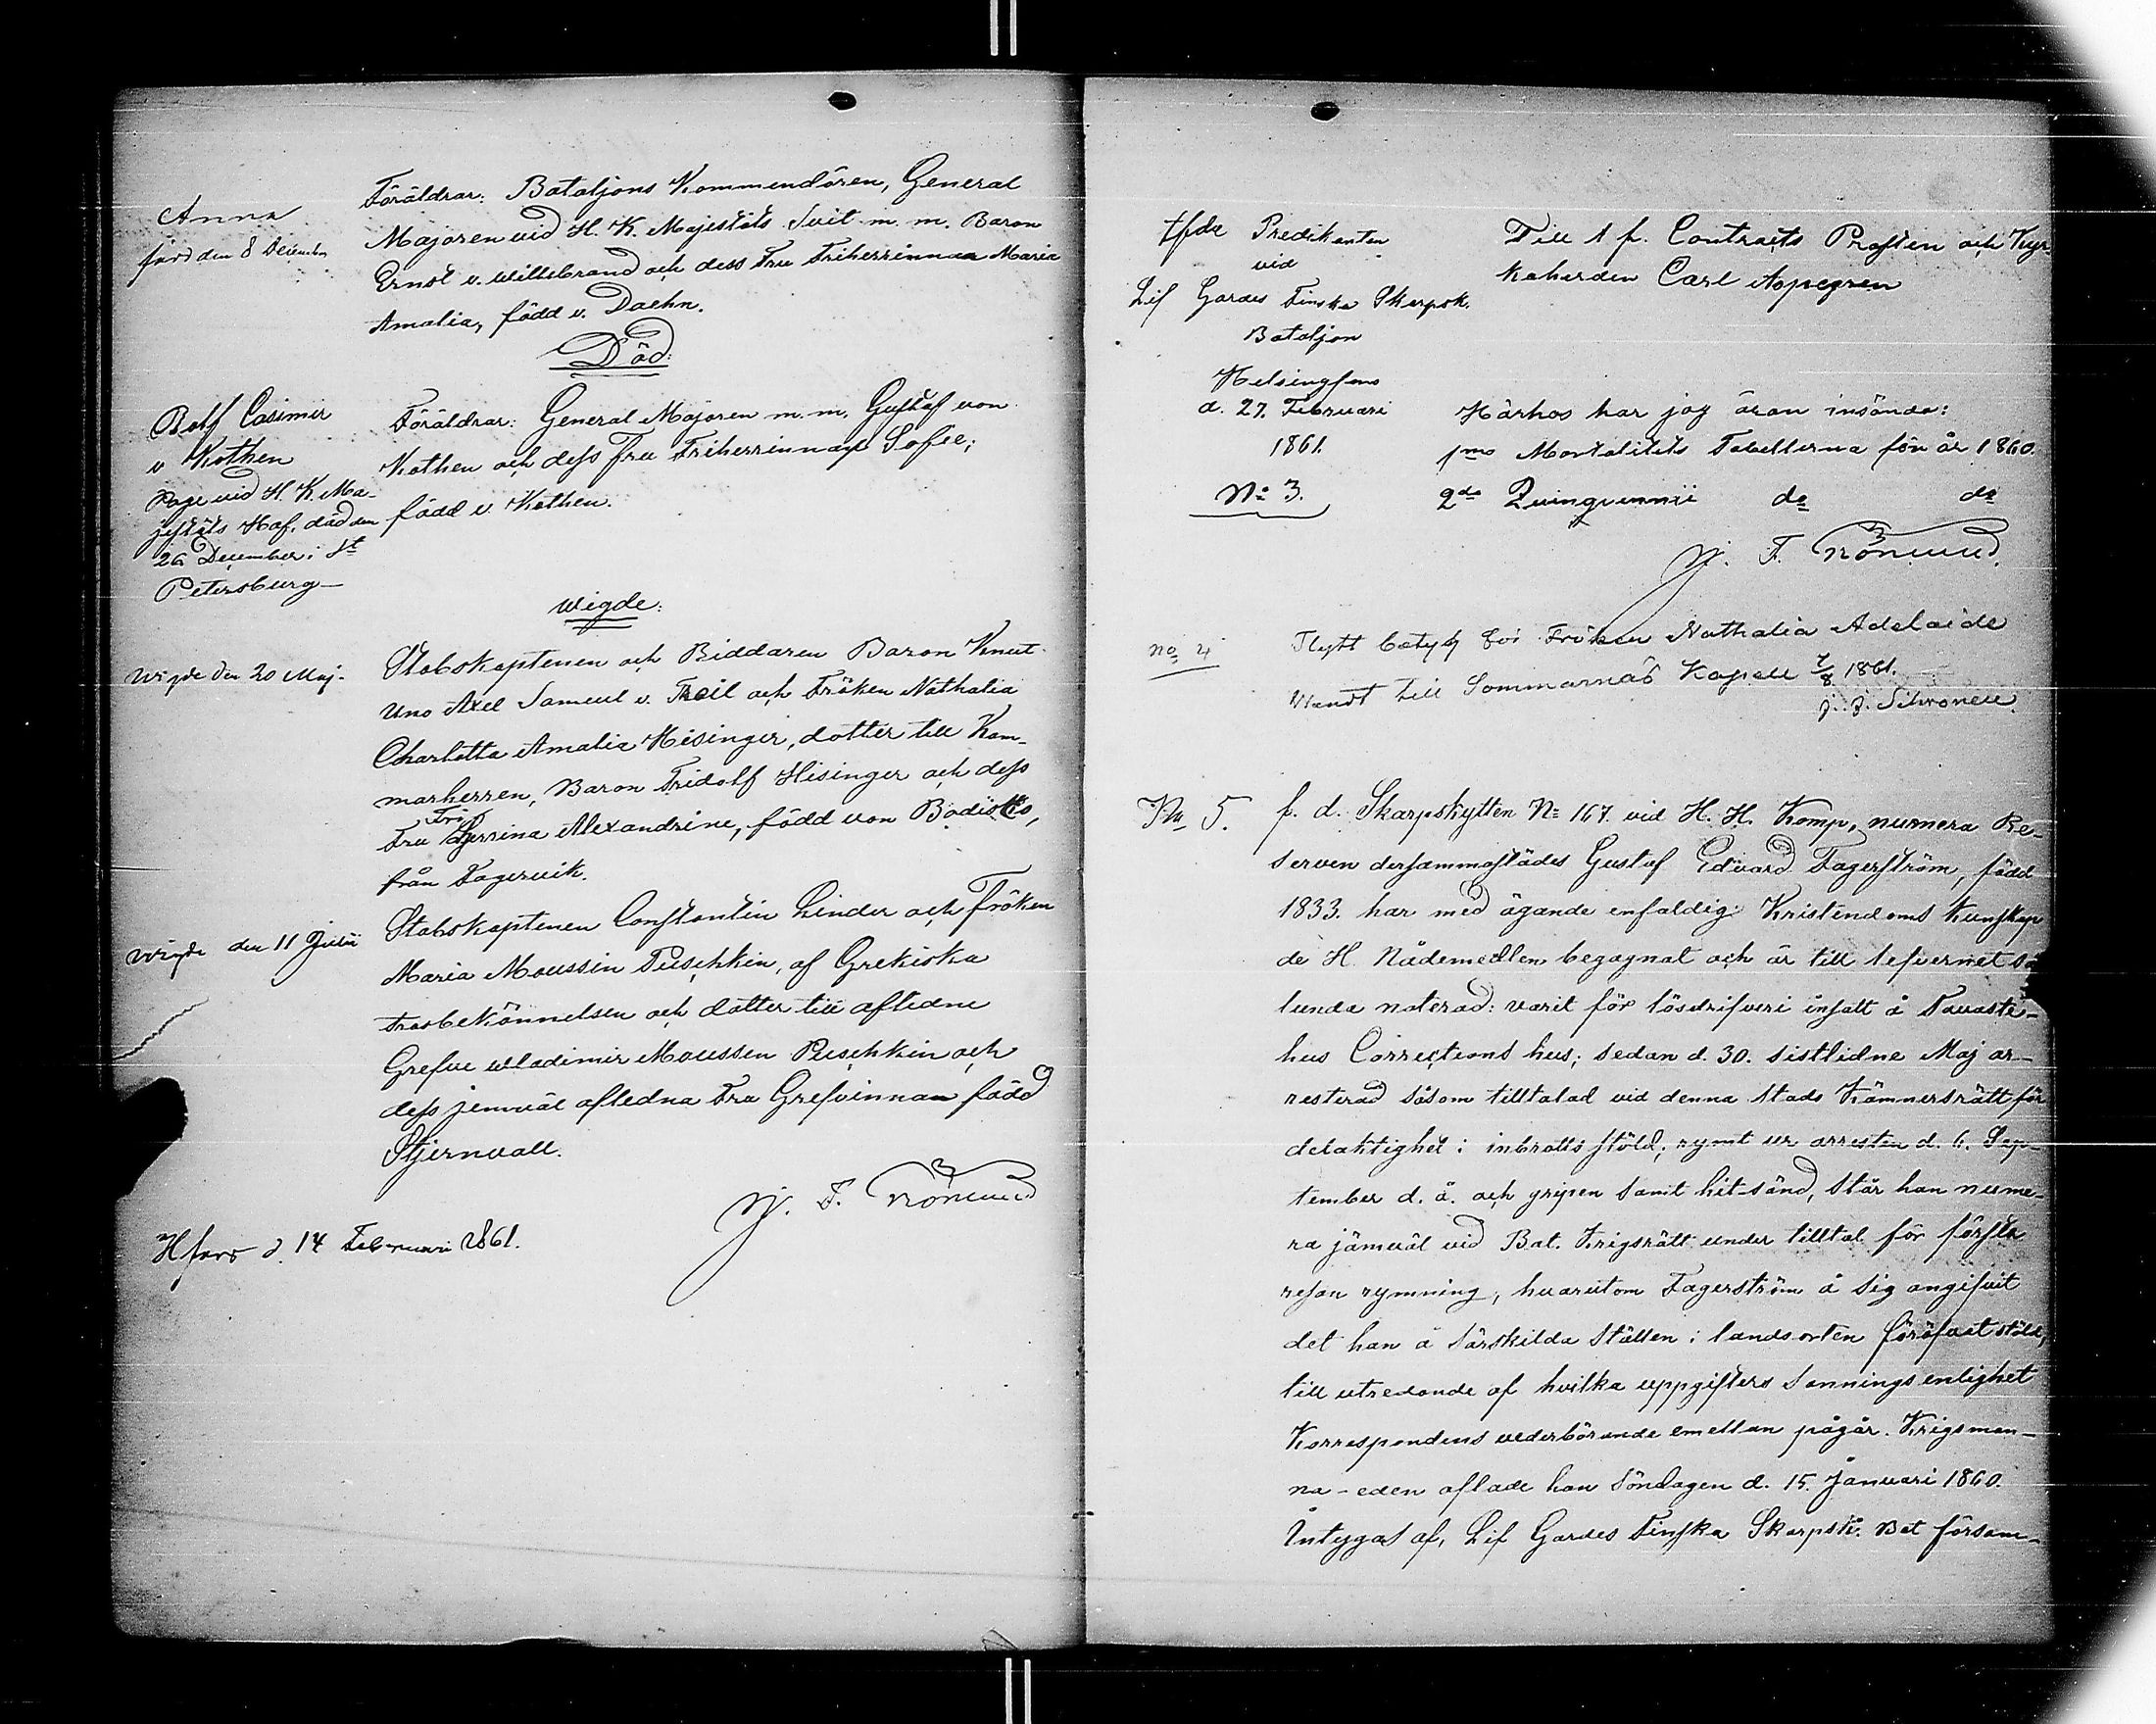 Anna
född den 8 December
Föräldrar: Bataljons Kommendören, General
Majoren vid H. K. Majestäts Svit m. m. Baron
Ernst v. Willebrand och dess Fru Friherrinnan Maria
Amalia, född v. Daehn.
Död:
Rolf Casimir
v Kothen
Page vid H. K. Ma-
jestäts Hof, död den
26 December i St
Petersburg
Föräldrar: General Majoren m. m. Gustaf von
Kothen och dess Fru Friherrinnan Sofie,
född v. Kothen.
Wigde:
Wigde den 20 Maj.
Stabskaptenen och Riddaren Baron Knut
Uno Axel Samuel v. Troil och Fröken Nathalia
Charlotta Amalia Hisinger, dotter till Kam-
marherren, Baron Fridolf Hisinger och dess
Fri
Fru Alexandrine, född von Bodisko,
från Fagervik.
Wigde den 11 Julii
Stabskaptenen Constantin Linder och Fröken
Maria Moussin Puschkin, af Grekiska
trosbekännelsen och dotter till aflidne
Grefve Wladimir Moussin Puschkin och
dess jemväl aflidna Fru Grefvinnan född
Stjernvall.
Hfors d. 14 Februari 1861.
Tfde Predikanten
vid
Lif Gardes Finska Skarpsk.
Bataljon
Helsingfors
d. 27. Februari
1861.
No 3.
Till t f. Contracts Prosten och Kyr-
koherden Carl Aspegren
Härhos har jag äran insända:
1mo Mortalitets Tabellerna för år 1860.
2do Quinquennii do do
No 4
Flytt betyg för Fröken Nathalia Adelaide
Wendt till Sommarnäs Kapell 7/8 1861.
No 5.
f. d. Skarpskytten No 167. vid H. H. Komp. numera Re-
serven dersammastädes Gustaf Edvard Fagerström, född
1833. har med ägande enfaldig Kristendoms Kunskap
de H. Nådemedlen begagnat och är till lefvernet så
lunda noterad: varit för lösdrifveri insatt å Tavaste-
hus Corrections hus; sedan d. 30. sistlidne Maj ar-
resterad såsom tilltalad vid denna Stads Kämnersrätt för
delaktighet i inbrotts stöld; rymt ur arresten d. 6. Sep-
tember d. å. och gripen samt hit-sänd, står han nume-
ra jämväl vid Bat. Krigsrätt under tilltal för första
resan rymning, hvarutom Fagerström å sig angifvit
det han å särskilda ställen i landsorten föröfvat stöld,
till utredande af hvilka uppgifters sannings enlighet
Korrespondens vederbörande emellan pågår. Krigsman-
na-eden aflade han Söndagen d. 15. Januari 1860.
Intygas af, Lif Gardes Finska Skarpsk. Bat församl-